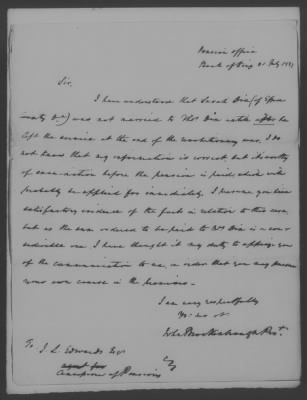 Pension office
Bank of 21 July 1837
Sir,
I have understood that Sarah Dix (of
) was not married to Thos Dix until after he
left the service at the end of the revolutionary war. I do
not know that my information is correct but it is worthy
of examination before the pension is paid which will
probably be applied for immediately. I presume you have
satisfactory evidence of the fact in relation to this case,
but as the sum ordered to be paid to Mrs Dix is a con-
siderable one I have thought it my duty to apprize you
of the communication to me, in order that you may pursue
your own course in the premises.
I am very respectfully
Yr. ob. st.
Brockenbrough Prst.
To J. L. Edwards Esqr
Pensions